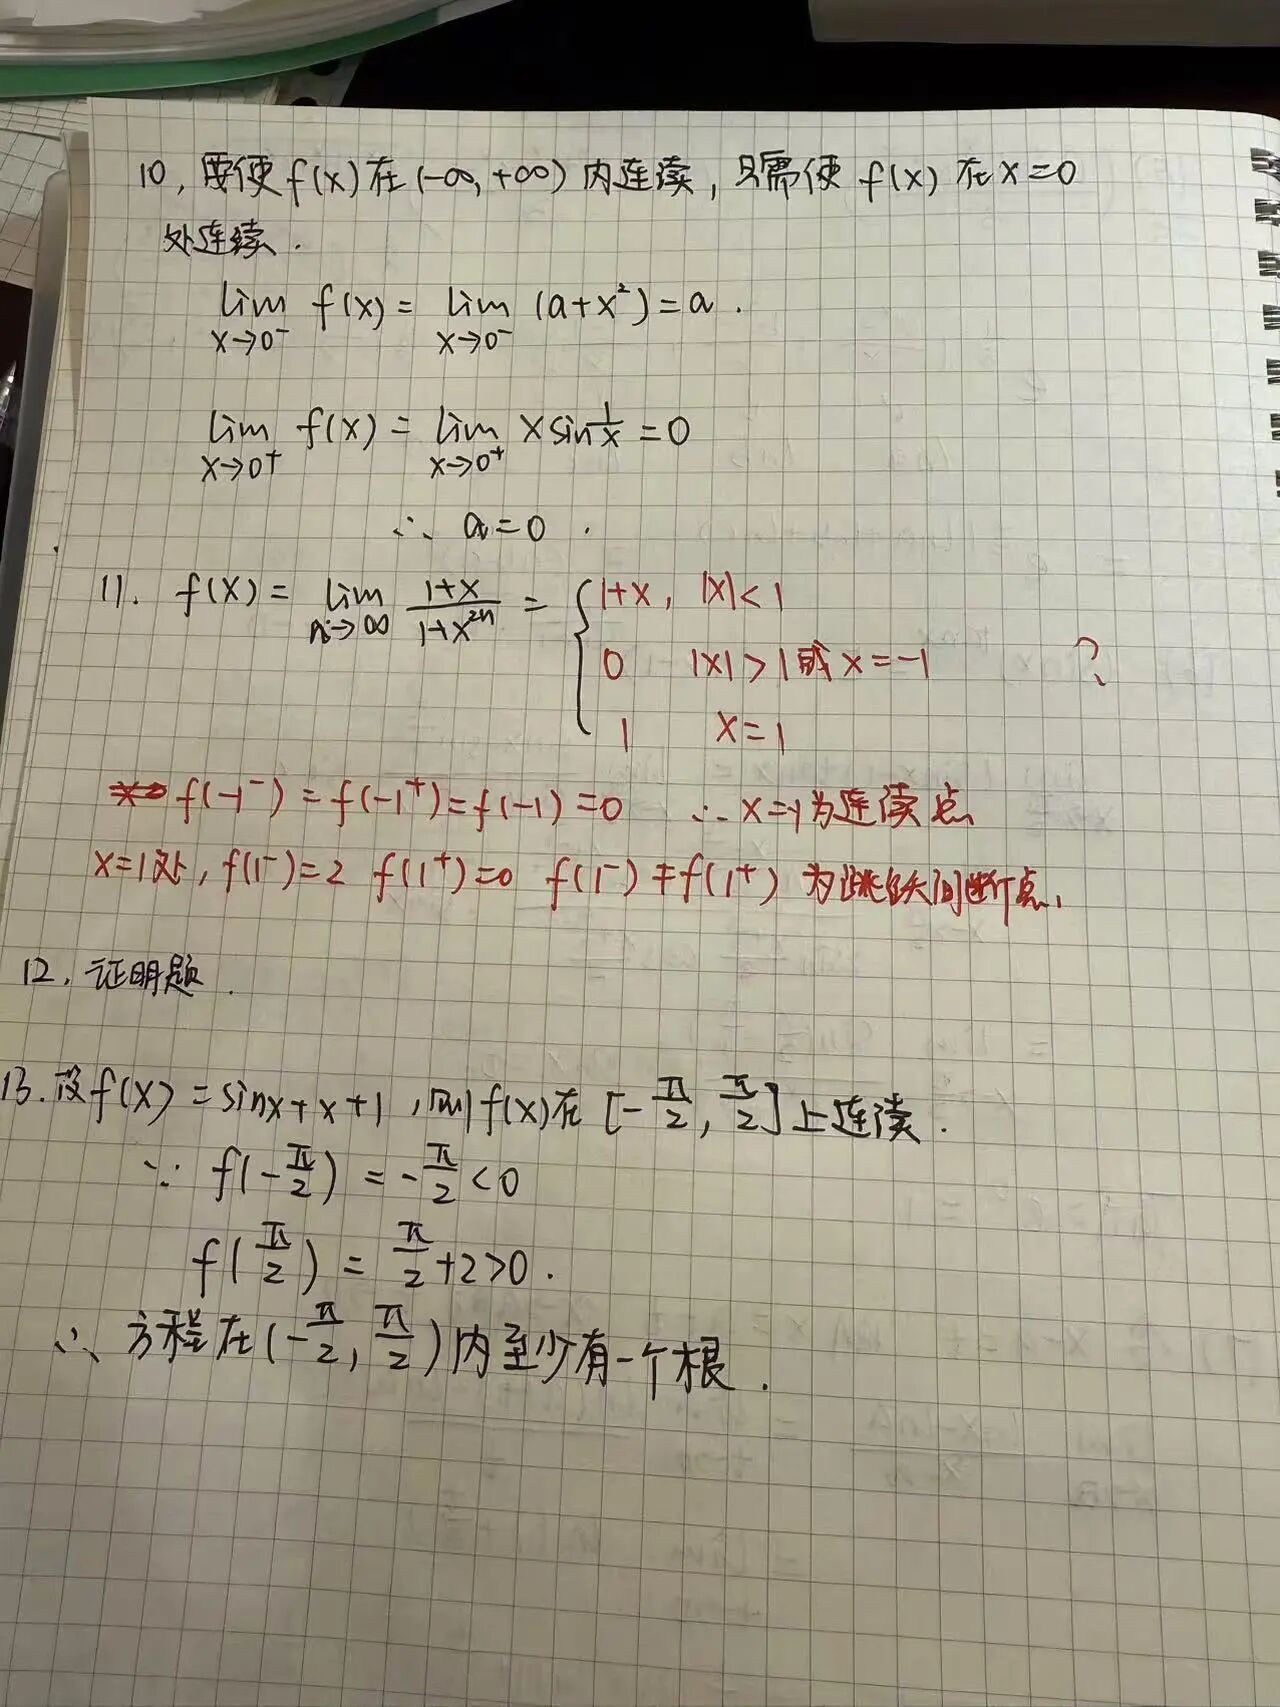 10, 要使 f(x) 在 (-∞, +∞) 内连续, 只需使 f(x) 在 x=0
处连续.
lim x→0⁻ f(x) = lim x→0⁻ (a+x²) = a .
lim x→0⁺ f(x) = lim x→0⁺ x sin 1/x = 0
∴ a=0 .
11. f(x) = lim n→∞ (1+x)/(1+x²ⁿ) = { 1+x, |x|<1
0 |x|>1或 x=-1 ?
1 x=1
f(-1⁻) = f(-1⁺) = f(-1) = 0 ∴ x=-1为连续点
x=1处, f(1⁻)=2 f(1⁺)=0 f(1⁻) ≠ f(1⁺) 为跳跃间断点.
12. 证明题.
13. 设 f(x) = sinx+x+1, 则 f(x) 在 [-π/2, π/2] 上连续.
∵ f(-π/2) = -π/2 <0
f(π/2) = π/2 +2>0.
∴ 方程在 (-π/2, π/2) 内至少有一个根.